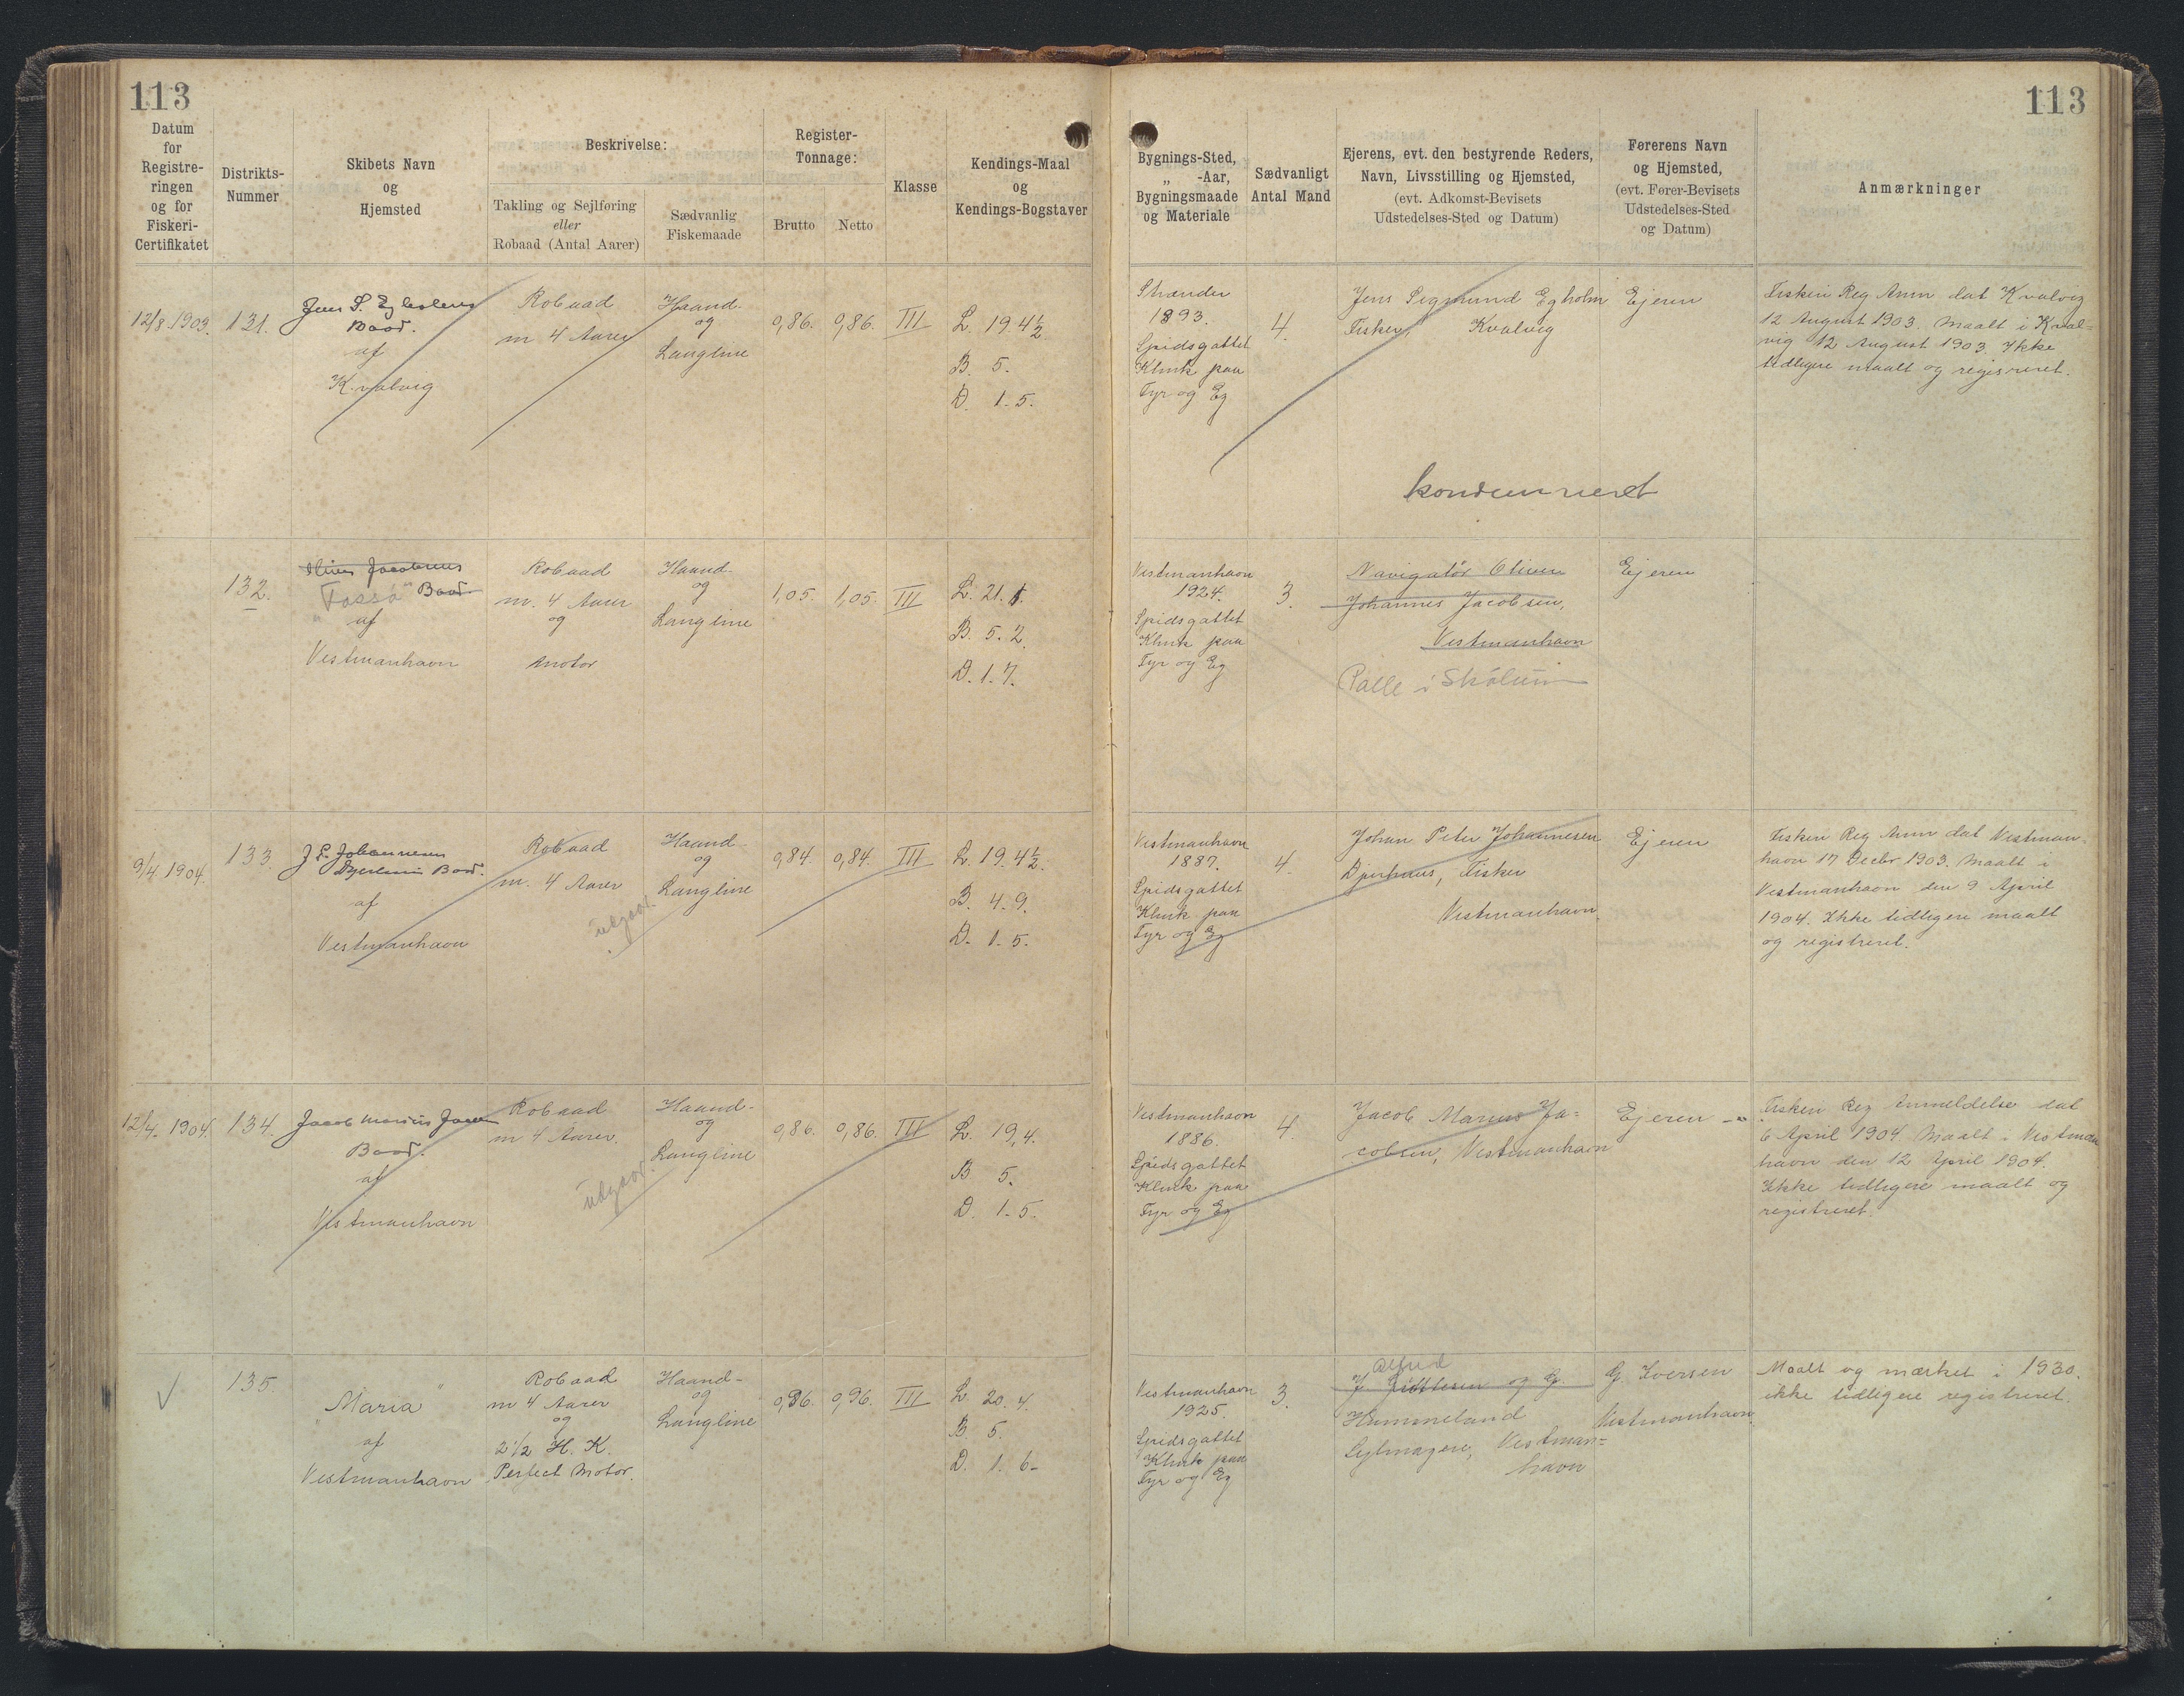 113
113
Datum
for
Registre-
ringen
og for
Fiskeri-
Certifikatet
Distrikts-
Nummer
Skibets Navn
og
Hjemsted
Beskrivelse:
Takling og Sejlføring
eller
Robaad (Antal Aarer)
Sædvanlig
Fiskemaade
Register-
Tonnage:
Brutto Netto
Klasse
Kendings-Maal
og
Kendings-Bogstaver
Bygnings-Sted,
„ -Aar,
Bygningsmaade
og Materiale
Sædvanligt
Antal Mand
Ejerens, evt. den bestyrende Reders,
Navn, Livsstilling og Hjemsted,
(evt. Adkomst-Bevisets
Udstedelses-Sted og Datum)
Førerens Navn
og Hjemsted,
(evt. Fører-Bevisets
Udstedelses-Sted
og Datum)
Anmærkninger
12/8 1903.
131.
Jens S.
Baad.
af
Kvalvig
Robaad
m 4 Aarer
Haand-
og
Langline
0,86. 0,86. III
L. 19. 4½
B. 5.
D. 1. 5.
Strander
1893.
Spidsgattet
Klink paa
Fyr og Eg
4.
Jens Sigmund Egholm
Fisker, Kvalvig
Ejeren
Fiskeri Reg Anm dat Kvalvig
12 August 1903. Maalt i Kval=
vig 12 August 1903. Ikke
tidligere maalt og registreret.
kondemneret
132.
Jacobsens
"Fossá" Baad
af
Vestmanhavn
Robaad
m. 4 Aarer
og
Motor
Haand-
og
Langline
1,05. 1,05. III
L. 21. 1.
B. 5. 2.
D. 1. 7.
Vestmanhavn
1924.
Spidsgattet
Klink paa
Fyr og Eg
3.
Navigatør Oliver
Johannes Jacobsen,
Vestmanhavn
Palle i Skálum
Ejeren
9/4 1904.
133.
J P. Johannesen
Baad.
af
Vestmanhavn
Robaad
m. 4 Aarer
udgaar.
Haand-
og
Langline
0,84. 0,84. III
L. 19. 4½.
B. 4. 9.
D. 1. 5.
Vestmanhavn
1887.
Spidsgattet
Klink paa
Fyr og Eg
4.
Johan Peter Johannesen
Djerhuus, Fisker
Vestmanhavn.
Ejeren
Fiskeri Reg Anm dat Vestman-
havn 17 Decbr 1903. Maalt i
Vestmanhavn den 9 April
1904. Ikke tidligere maalt
og registreret.
12/4. 1904.
134.
Jacob Marius
Baad.
af
Vestmanhavn
Robaad
m 4 Aarer.
udgaar.
Haand-
og
Langline
0,86. 0,86. III
L. 19, 4.
B 5.
D. 1. 5.
Vestmanhavn
1886.
Spidsgattet
Klink paa
Fyr og Eg
4.
Jacob Marius Ja=
cobsen, Vestmanhavn
Ejeren
Fiskeri Reg Anmeldelse dat
6 April 1904. Maalt i Vestman
havn den 12 April 1904.
Ikke tidligere maalt og
registreret.
135.
"Maria"
af
Vestmanhavn
Robaad
m 4 Aarer
og
2 1/2 H. K.
Perfect Motor.
Haand-
og
Langline
0,96. 0,96. III
L 20. 4.
B. 5.
D. 1. 6-
Vestmanhavn
1925.
Spidsgattet
Klink paa
Fyr og Eg
3.
Alfred
J og G.
Hammeland
Vestman=
havn
G. Iversen
Vestmanhavn.
Maalt og mærket i 1930.
ikke tidligere registreret.